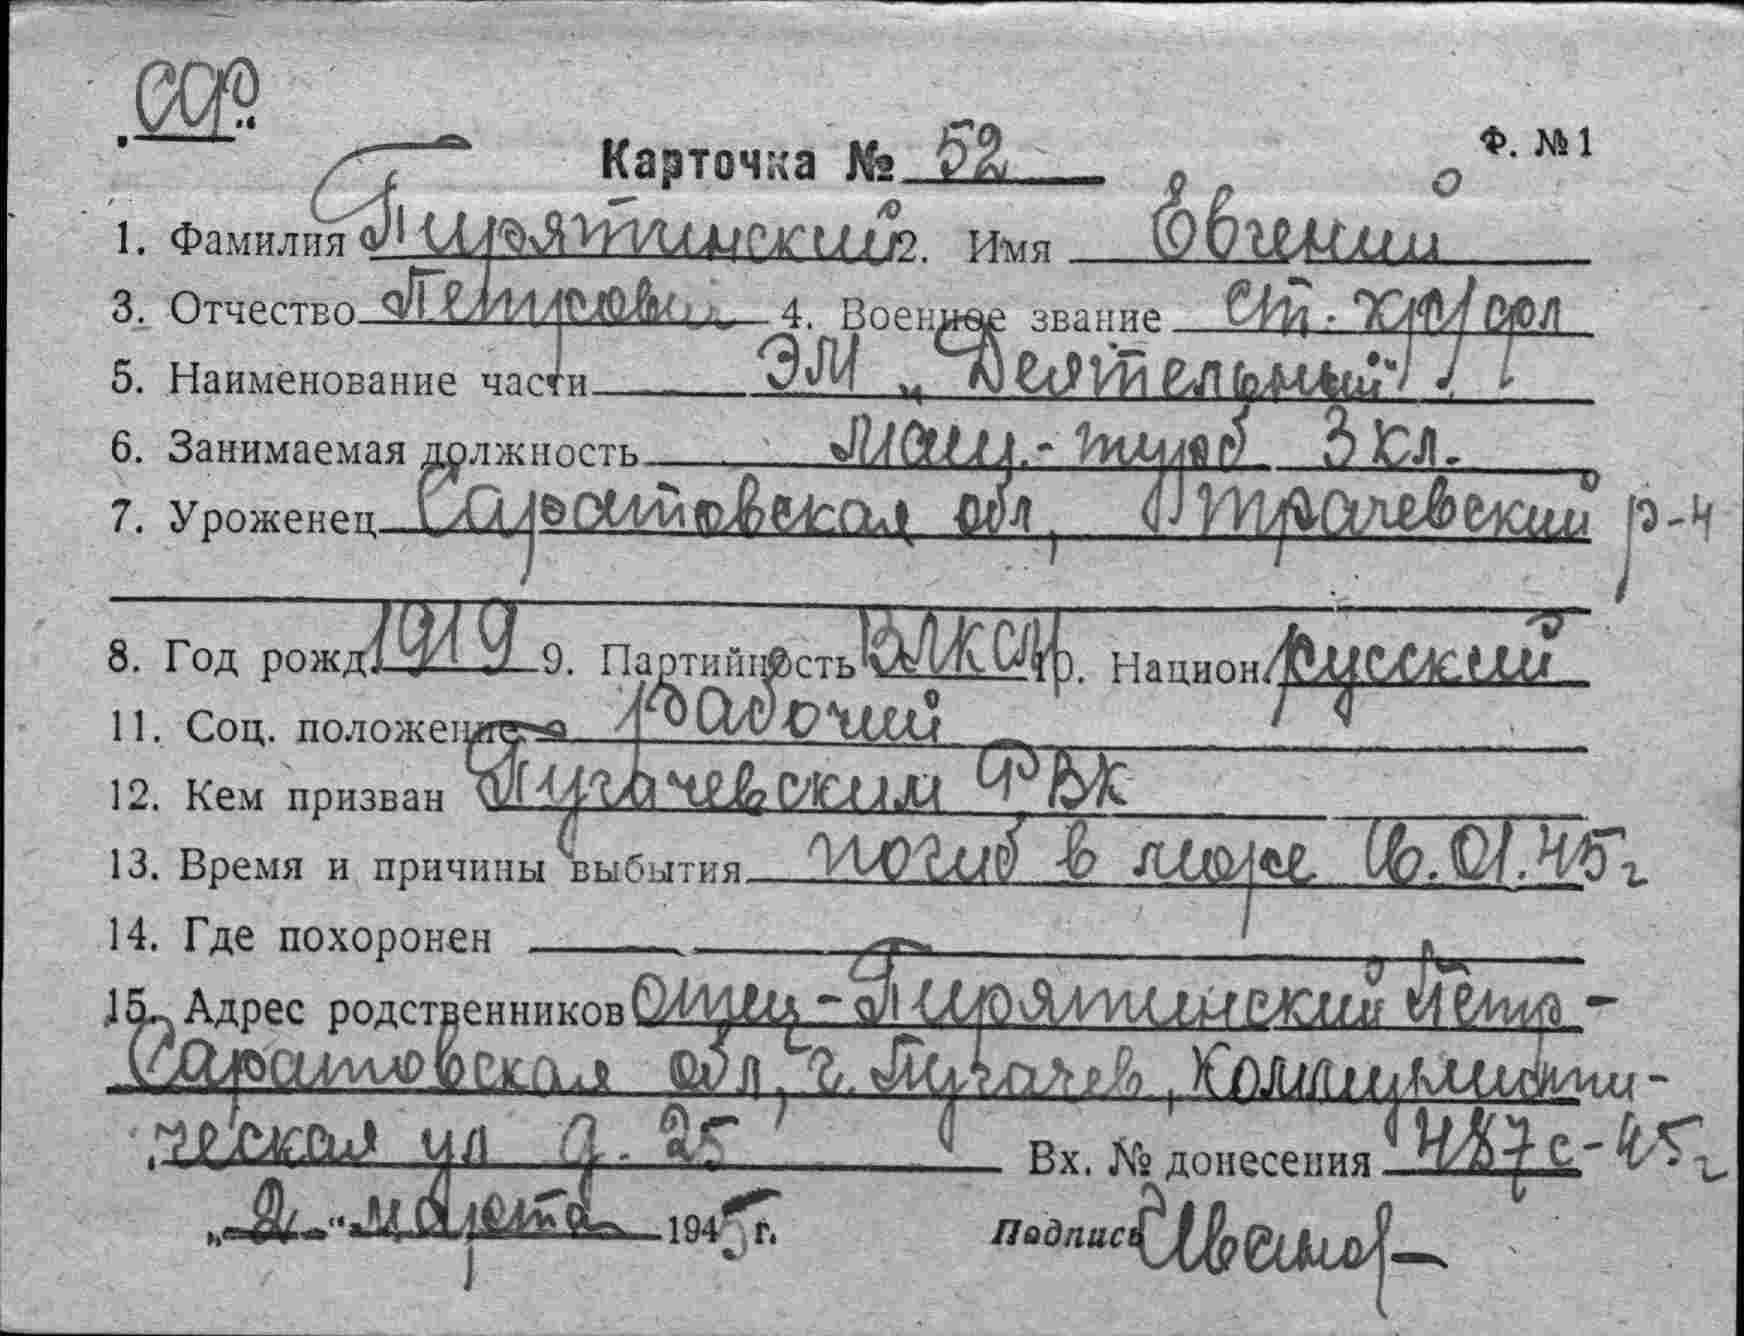 Ф. №1
Карточка № 52
1. Фамилия Пирятинский 2. Имя Евгений
3. Отчество Петрович 4. Военное звание ст.
5. Наименование части ЭМ „Деятельный"
6. Занимаемая должность Маш.-турб 3 кл.
7. Уроженец Саратовская обл, р-н
8. Год рожд. 1919 9. Партийность ВЛКСМ 10. Национ. русский
11. Соц. положение рабочий
12. Кем призван Пугачевским РВК
13. Время и причины выбытия погиб в море 16.01.45г
14. Где похоронен
15. Адрес родственников Отец - Пирятинский Петр -
Саратовская обл, г. Пугачев, Коммунисти-
ческая ул д. 25 Вх. № донесения 487с-45г
„2" марта 1945 г. Подпись Иванов